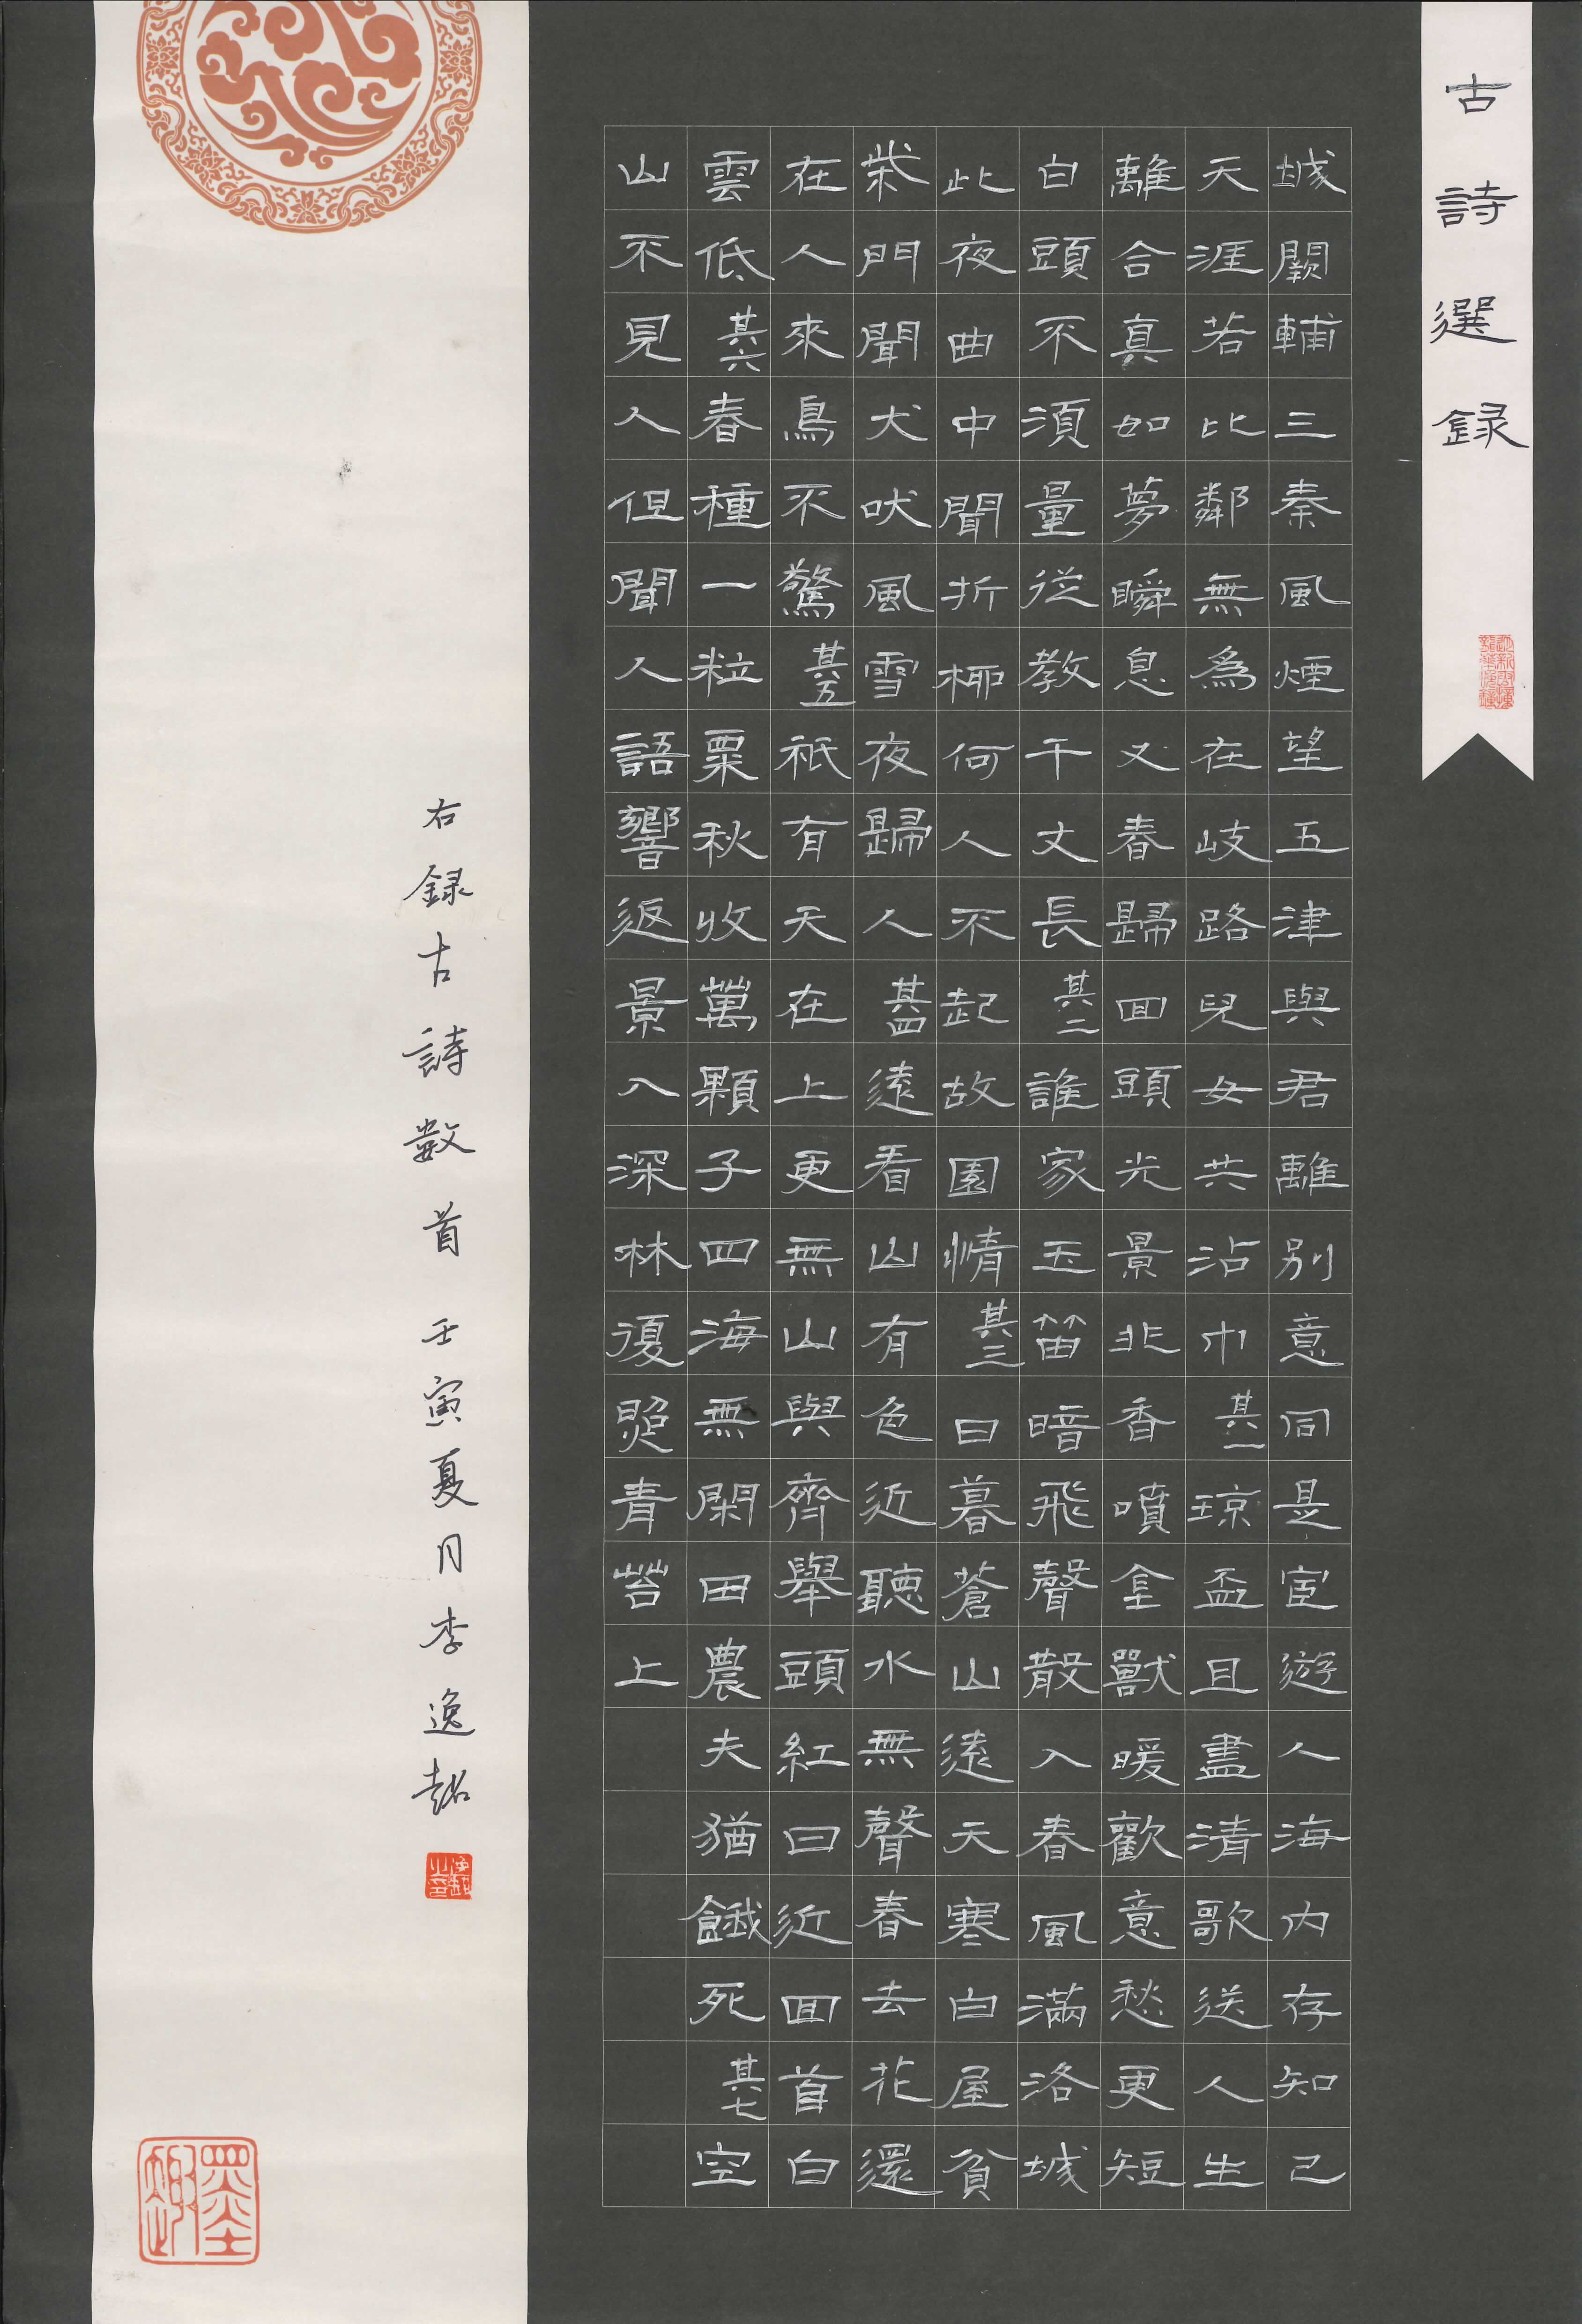 古詩選録
城闕輔三秦風煙望五津與君離別意同是宦遊人海內存知己
天涯若比鄰無為在岐路兒女共沾巾其一琼盃且盡清歌送人生
離合真如夢瞬息又春歸回頭光景非香噴金獸暖歡意愁更短
白頭不須量從教千丈長其二誰家玉笛暗飛聲散入春風滿洛城
此夜曲中聞折柳何人不起故園情其三日暮蒼山遠天寒白屋貧
柴門聞犬吠風雪夜歸人其四遠看山有色近聽水無聲春去花還
在人來鳥不驚其五祇有天在上更無山與齊舉頭紅日近回首白
雲低其六春種一粒粟秋收萬顆子四海無閑田農夫猶餓死其七空
山不見人但聞人語響返景入深林復照青苔上
右録古詩數首 壬寅夏月李逸超
墨趣